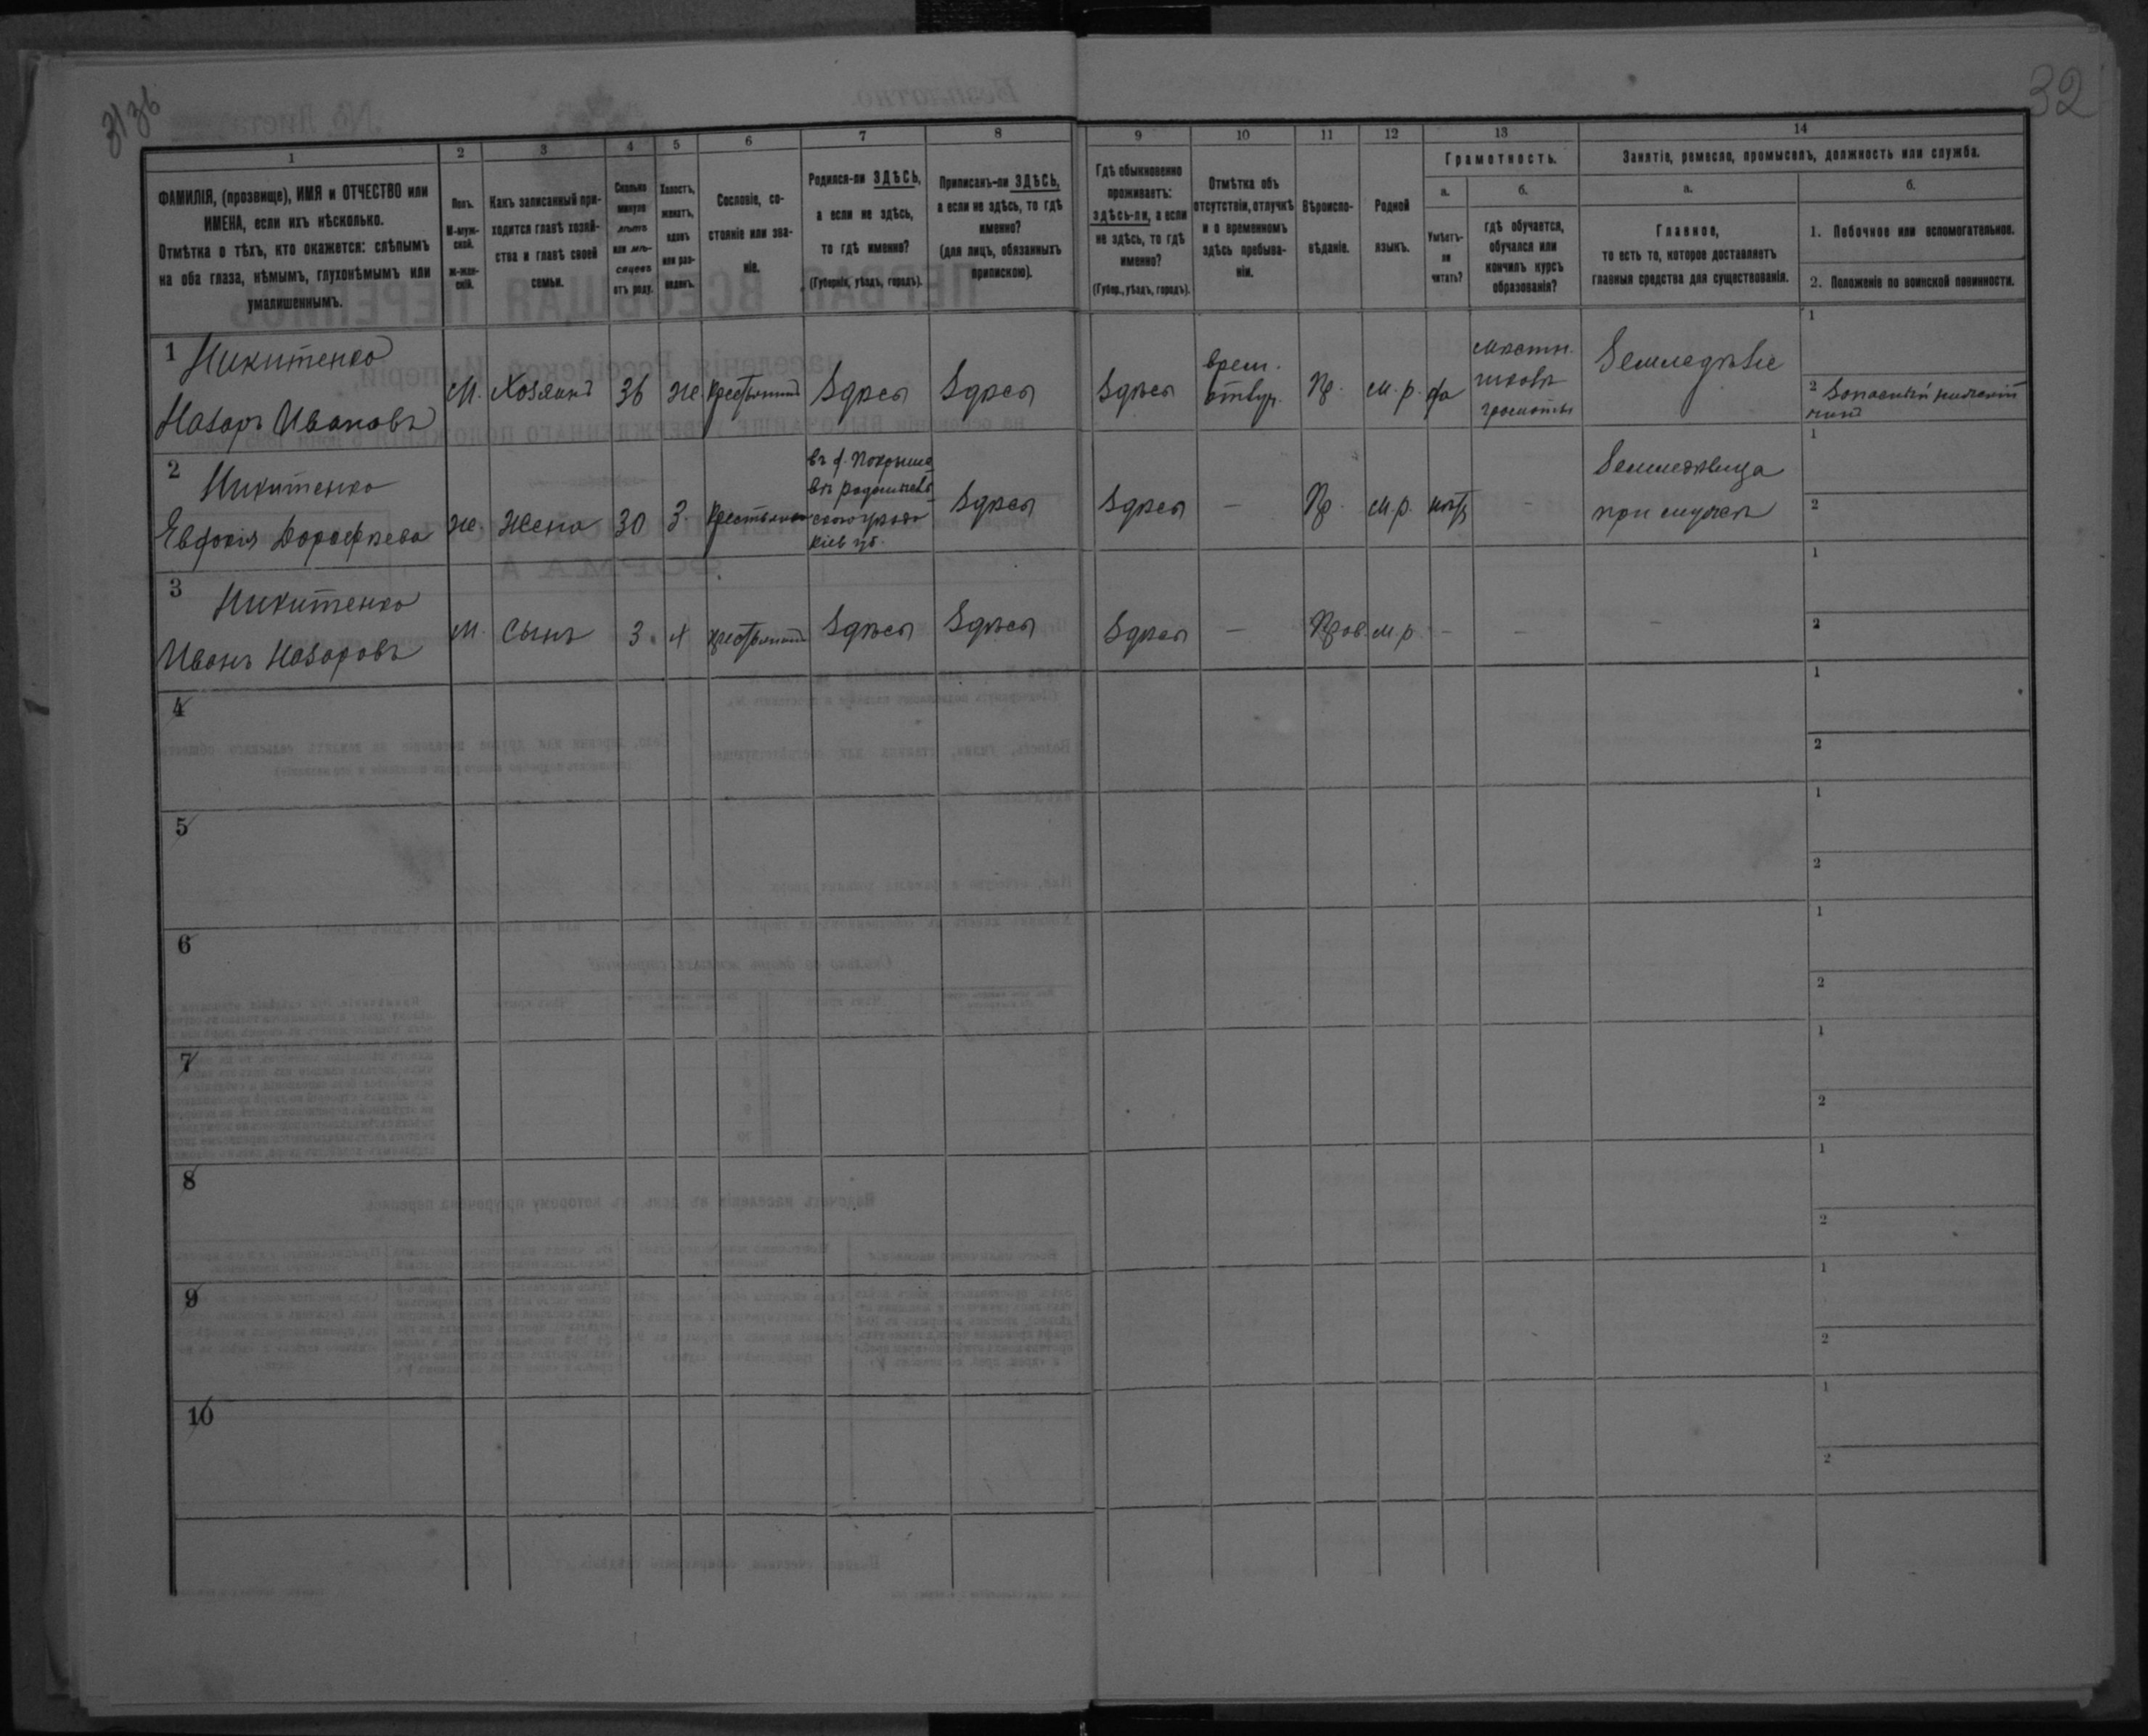 32
1
2
3
4
5
6
7
8
9
10
11
12
13
14
ФАМИЛІЯ, (прозвище), ИМЯ и ОТЧЕСТВО или
ИМЕНА, если ихъ нѣсколько.
Отмѣтка о тѣхъ, кто окажется: слѣпымъ
на оба глаза, нѣмымъ, глухонѣмымъ или
умалишеннымъ.
Полъ.
М-муж-
ской.
ж-жен-
скій.
Какъ записанный при-
ходится главѣ хозяй-
ства и главѣ своей
семьи.
Сколько
минуло
лѣтъ
или мѣ-
сяцевъ
отъ роду.
Холостъ,
женатъ,
вдовъ
или раз-
веденъ.
Сословіе, со-
стояніе или зва-
ніе.
Родился-ли ЗДѢСЬ,
а если не здѣсь,
то гдѣ именно?
(Губернія, уѣздъ, городъ).
Приписанъ-ли ЗДѢСЬ,
а если не здѣсь, то гдѣ
именно?
(для лицъ, обязанныхъ
припискою).
Гдѣ обыкновенно
проживаетъ:
здѣсь-ли, а если
не здѣсь, то гдѣ
именно?
(Губер., уѣздъ, городъ).
Отмѣтка объ
отсутствіи, отлучкѣ
и о временномъ
здѣсь пребыва-
ніи.
Вѣроиспо-
вѣданіе.
Родной
языкъ.
Грамотность.
а.
б.
Умѣетъ-
ли
читать?
гдѣ обучается,
обучался или
кончилъ курсъ
образованія?
Занятіе, ремесло, промыселъ, должность или служба.
а.
б.
Главное,
то есть то, которое доставляетъ
главныя средства для существованія.
1. Побочное или вспомогательное.
2. Положеніе по воинской повинности.
1 Никитенко
Назаръ Ивановъ
М. Хозяинъ 36 же. Крестьянинъ Здѣсь Здѣсь Здѣсь
врем.
отлуч.
Пр. м.р. да
школѣ
грамоты
Земледѣліе
1
2 Запасный нижній
чинъ
2 Никитенко
Евдокія Дорофѣева
же. Жена 30 З. Крестьянка
въ д.
Кіев губ.
Здѣсь Здѣсь — Пр. м.р. нѣтъ —
при мужѣ
1
2
3 Никитенко
Иванъ Назаровъ
М. Сынъ 3. х крестьянинъ Здѣсь Здѣсь Здѣсь — Прав. м.р. — — —
1
2
4
1
2
5
1
2
6
1
2
7
1
2
8
1
2
9
1
2
10
1
2